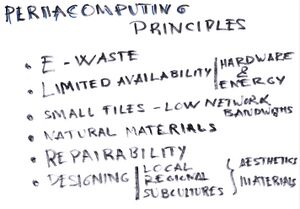 PERMACOMPUTING
PRINCIPLES
• E-WASTE
• LIMITED AVAILABILITY | HARDWARE & ENERGY
• SMALL FILES - LOW NETWORK BANDWITHS
• NATURAL MATERIALS
• REPAIRABILITY
• DESIGNING | LOCAL REGIONAL SUBCULTURES { AESTHETICS MATERIALS